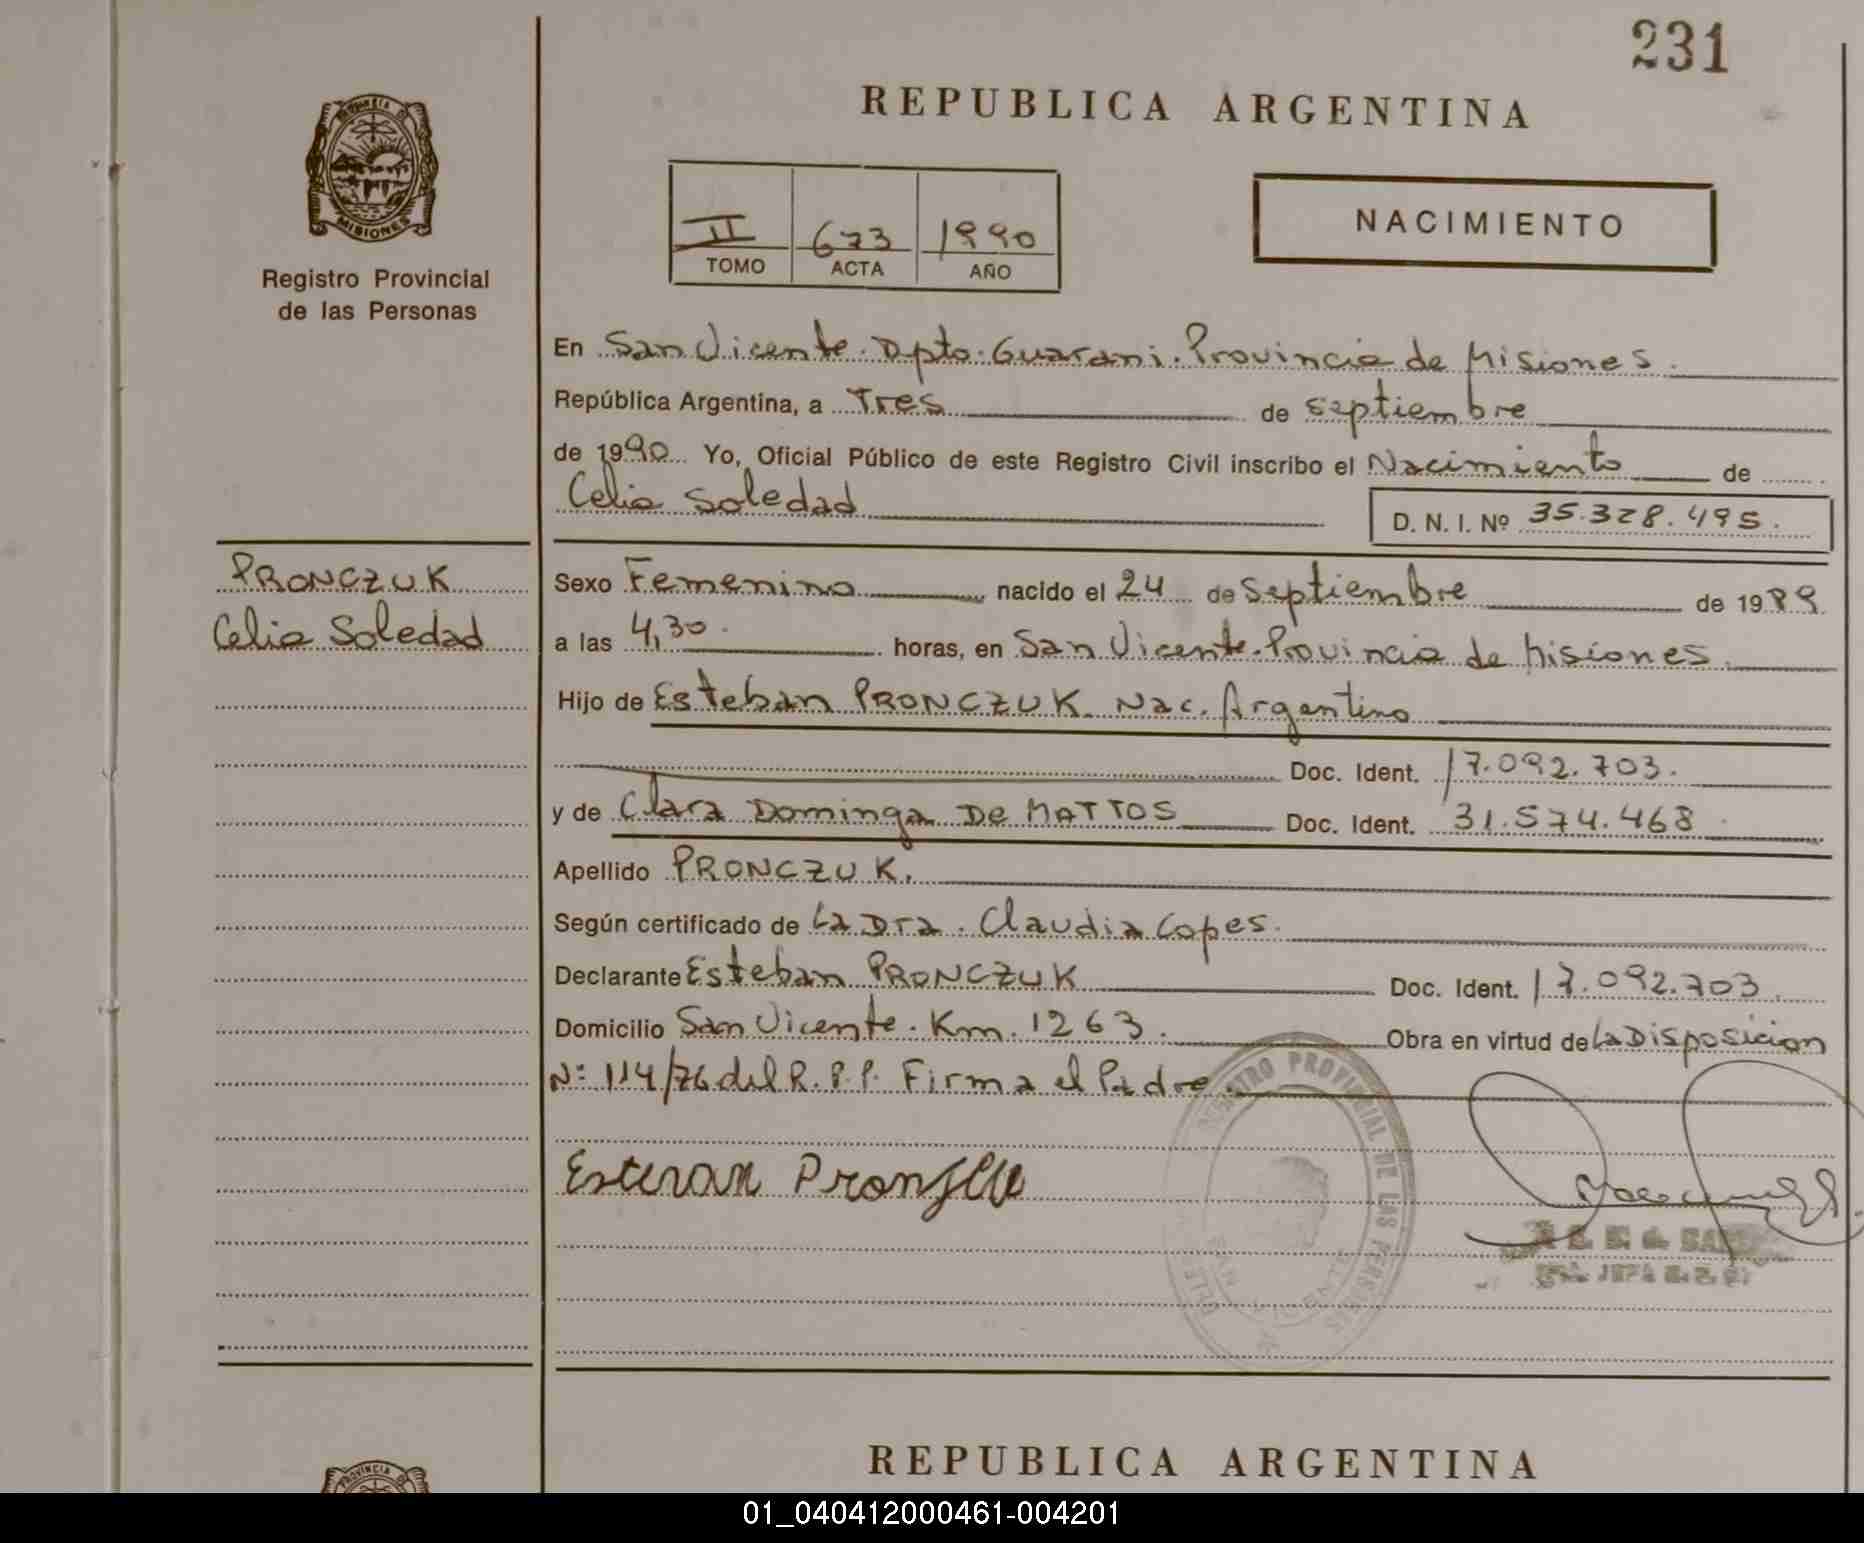 231
REPUBLICA ARGENTINA
PROVINCIA DE
MISIONES
Registro Provincial
de las Personas
II 673 1990
TOMO ACTA AÑO
NACIMIENTO
En San Vicente. Dpto. Guarani. Provincia de Misiones.
República Argentina, a Tres de septiembre
de 1990 Yo, Oficial Público de este Registro Civil inscribo el Nacimiento de
Celia Soledad D. N. I. Nº 35.328.495.
PRONCZUK
Celia Soledad
Sexo Femenino nacido el 24 de Septiembre de 1989
a las 4,30. horas, en San Vicente. Provincia de Misiones.
Hijo de Esteban PRONCZUK. Nac. Argentino
Doc. Ident. 17.092.703.
y de Clara Dominga DE MATTOS Doc. Ident. 31.574.468
Apellido PRONCZUK.
Según certificado de La Dra. Claudia Copes.
Declarante Esteban PRONCZUK Doc. Ident. 17.092.703.
Domicilio San Vicente. Km. 1263. Obra en virtud de La Disposicion
Nº 114/76 del R.P.P. Firma el Padre.
REGISTRO PROVINCIAL DE LAS PERSONAS
Estevan
REPUBLICA ARGENTINA
PROVINCIA D
01_040412000461-004201